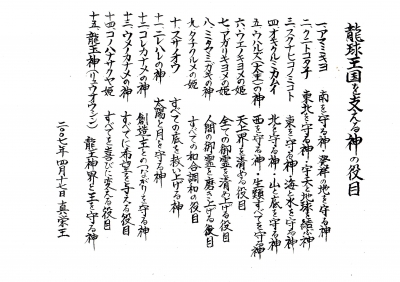 龍球王国を支える神の役目
一、アマミキヨ 南を守る神・発祥の地を守る神
二、クニトコタチ 東北を守る神・宇天と地球を結ぶ神
三、スクナヒコノミコト 東を守る神・海と水を守る神
四、オオクルミカムイ 北を守る神・山と底を守る神
五、ウハルズ(大金)の神 西を守る神・生類すべてを守る神
六、ウエノキヨメの姫 天上界を清める役目
七、アガリキヨメの姫 全ての御霊を清め上げる役目
八、ミタマミガキの神 人間の御霊を磨き上げる役目
九、タチクルメの姫 すべての和合調和の役目
十、スサノオウ すべての底を救い上げる神
十一、ニレハレの神 太陽と月を守る神
十二、コレカナメの神 創造主とのつながりを守る神
十三、ウメノカナメの神 すべてに希望を与える役目
十四、コノハナサクヤ姫 すべてを喜びに変える役目
十五、龍玉神(リュウオウシン) 龍玉神界と王を守る神
二〇一七年 四月十七日 真栄王